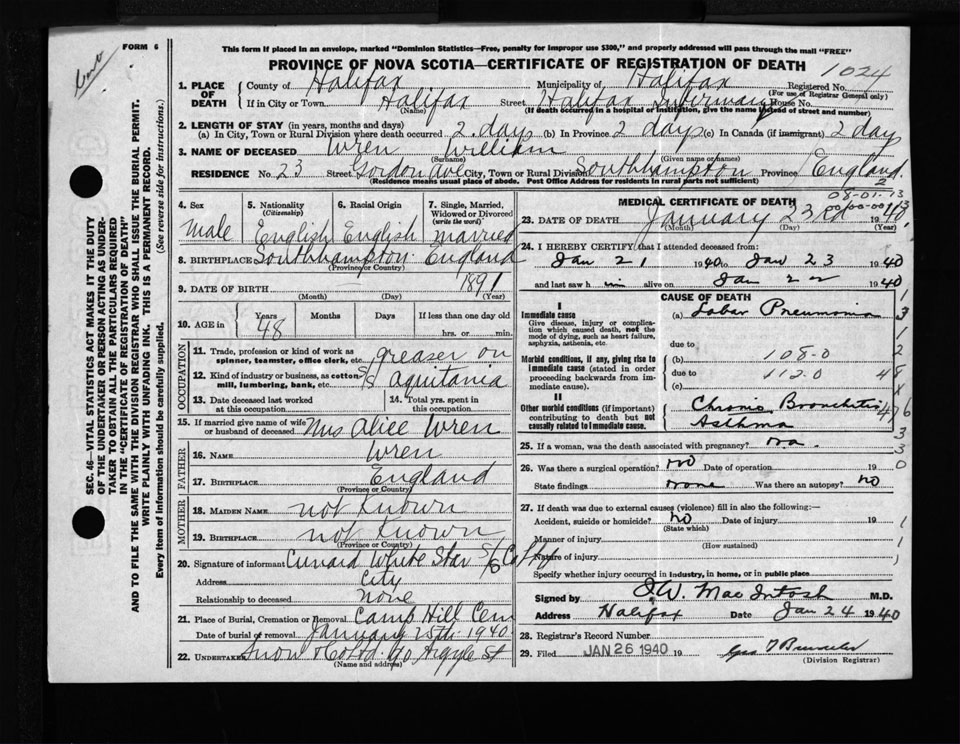 FORM 6
This form if placed in an envelope, marked "Dominion Statistics—Free, penalty for improper use $300," and properly addressed will pass through the mail "FREE"
PROVINCE OF NOVA SCOTIA—CERTIFICATE OF REGISTRATION OF DEATH
1024
SEC. 46—VITAL STATISTICS ACT MAKES IT THE DUTY
OF THE UNDERTAKER OR PERSON ACTING AS UNDER-
TAKER TO OBTAIN ALL THE PARTICULARS REQUIRED
IN THE "CERTIFICATE OF REGISTRATION OF DEATH"
AND TO FILE THE SAME WITH THE DIVISION REGISTRAR WHO SHALL ISSUE THE BURIAL PERMIT.
WRITE PLAINLY WITH UNFADING INK. THIS IS A PERMANENT RECORD.
Every item of Information should be carefully supplied. (See reverse side for instructions.)
1. PLACE OF DEATH County of Halifax Municipality of Halifax Registered No.
(For use of Registrar General only)
If in City or Town Halifax Street Halifax Infirmary House No.
(If death occurred in a hospital or institution, give the name instead of street and number)
2. LENGTH OF STAY (in years, months and days)
(a) In City, Town or Rural Division where death occurred 2 days (b) In Province 2 days (c) In Canada (if immigrant) 2 days
3. NAME OF DECEASED Wren William
(Surname) (Given name or names)
RESIDENCE No. 23 Street Gordon Ave City, Town or Rural Division Southhampton Province England.
(Residence means usual place of abode. Post Office Address for residents in rural parts not sufficient)
4. Sex Male
5. Nationality (Citizenship) English
6. Racial Origin English
7. Single, Married, Widowed or Divorced (write the word) Married
8. BIRTHPLACE Southhampton England
(Province or Country)
9. DATE OF BIRTH 1891
(Month) (Day) (Year)
10. AGE in Years 48 Months Days If less than one day old
hrs. or min.
OCCUPATION
11. Trade, profession or kind of work as spinner, teamster, office clerk, etc. greaser on
12. Kind of industry or business, as cotton-mill, lumbering, bank, etc. S/S Aquitania
13. Date deceased last worked at this occupation
14. Total yrs. spent in this occupation
15. If married give name of wife or husband of deceased Mrs Alice Wren
FATHER
16. NAME Wren
17. BIRTHPLACE England
(Province or Country)
MOTHER
18. MAIDEN NAME not Known
19. BIRTHPLACE not Known
(Province or Country)
20. Signature of informant Cunard White Star S/S Co
Address City
Relationship to deceased None
21. Place of Burial, Cremation or Removal Camp Hill Cem
Date of burial or removal January 25th 1940.
22. UNDERTAKER Snow & Co Ltd. 90 Argyle St
(Name and address)
MEDICAL CERTIFICATE OF DEATH
08-01-13
23. DATE OF DEATH January 23rd 1940
(Month) (Day) (Year)
24. I HEREBY CERTIFY that I attended deceased from:
Jan 21 1940 to Jan 23 1940
and last saw him alive on Jan 22 1940
CAUSE OF DEATH
I
Immediate cause
Give disease, injury or complication which caused death, not the mode of dying, such as heart failure, asphyxia, asthenia, etc.
(a) Lobar Pneumonia
due to
Morbid conditions, if any, giving rise to Immediate cause (stated in order proceeding backwards from immediate cause).
(b) 108-0
due to 112-0
(c)
II
Other morbid conditions (if important) contributing to death but not causally related to Immediate cause.
Chronic Bronchitis
Asthma
25. If a woman, was the death associated with pregnancy? no.
26. Was there a surgical operation? No Date of operation 19
State findings none Was there an autopsy? No
27. If death was due to external causes (violence) fill in also the following:—
Accident, suicide or homicide? No Date of injury 19
(State which)
Manner of injury
(How sustained)
Nature of injury
Specify whether injury occurred in industry, in home, or in public place
Signed by MacIntosh M.D.
Address Halifax Date Jan 24 1940
28. Registrar's Record Number
29. Filed JAN 26 1940 19
(Division Registrar)